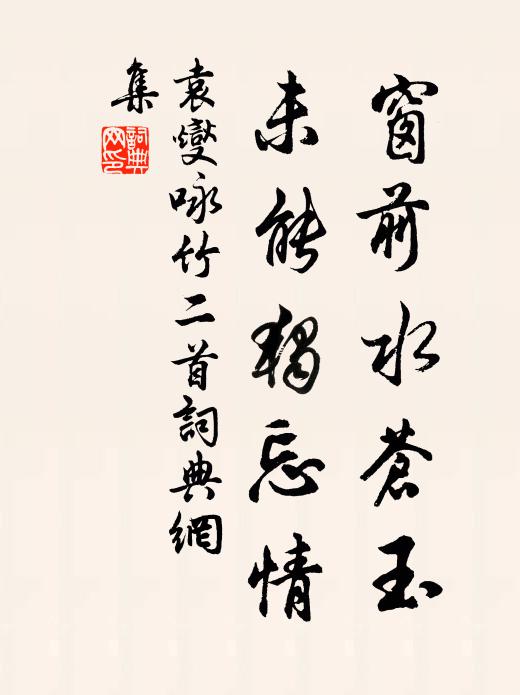 窗前水蒼玉
未能獨忘情
袁燮咏竹二首詞典網
集
詞典
网印